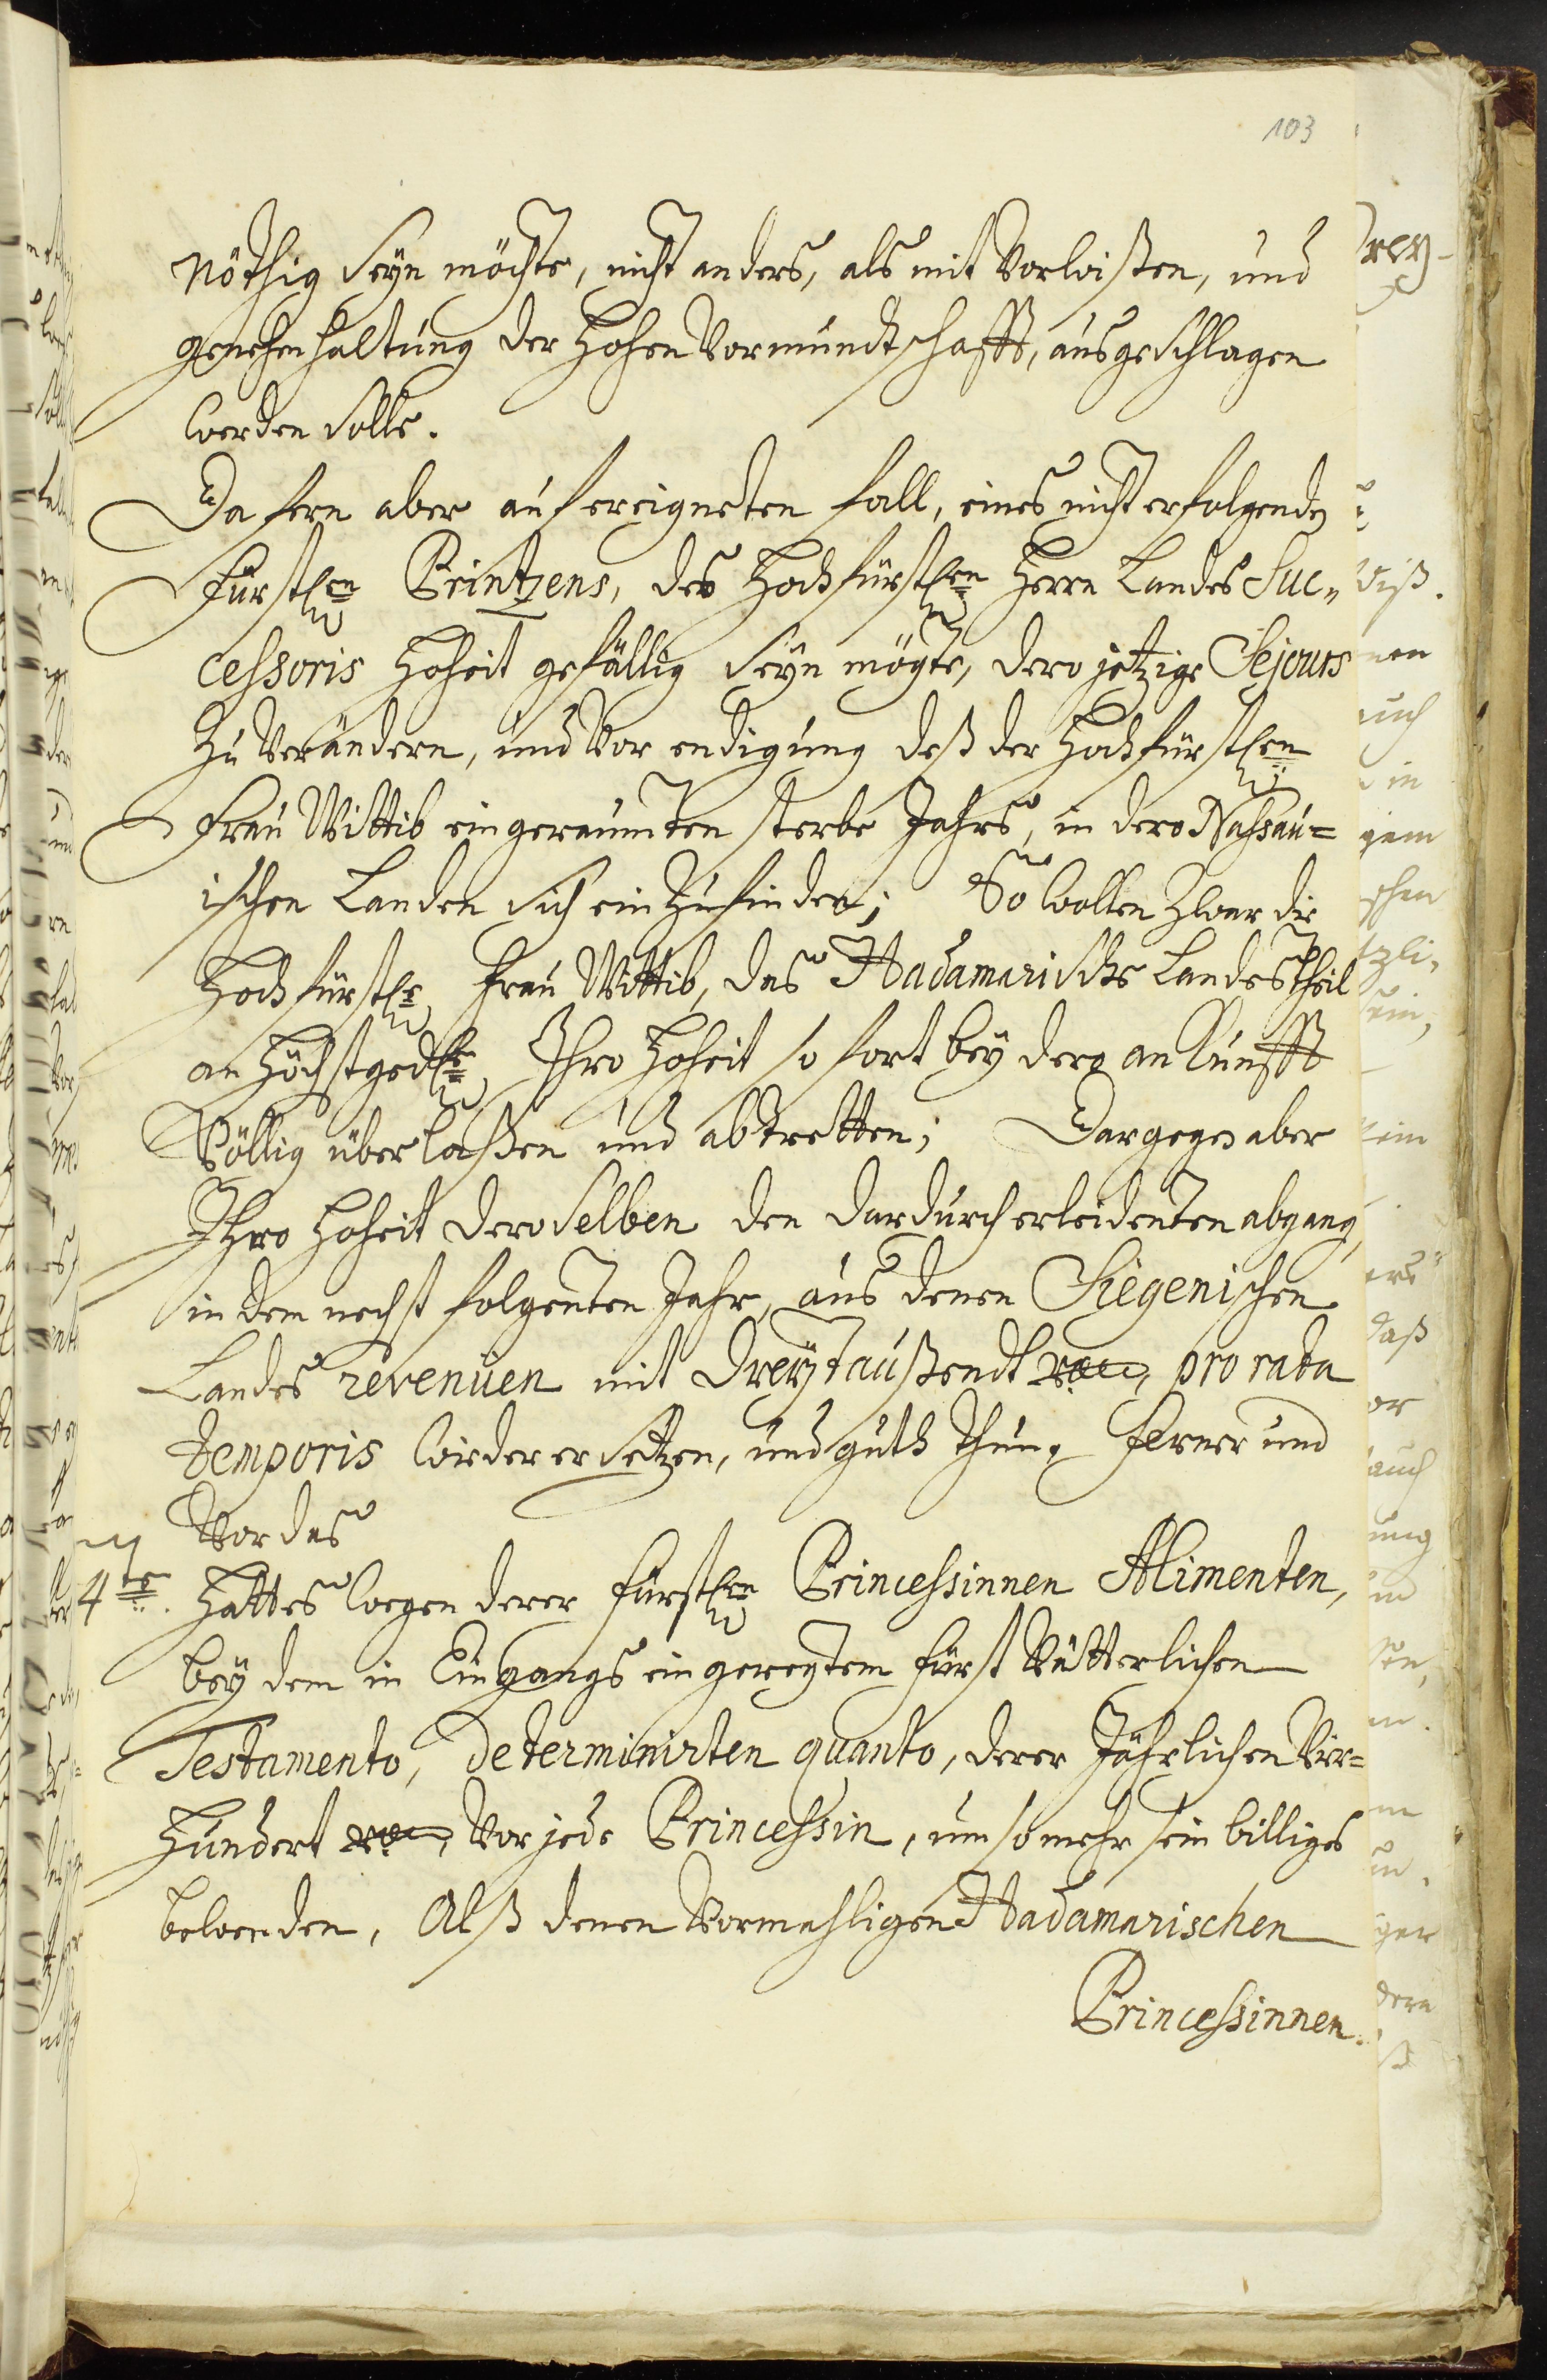 103
nöthig seyn möchte, nicht anders, als mit Vorwißen, und
genehmhaltung der Hohen Vormundtschafft, ausgeschlagen
werden solle.
Dafern aber auf ereigneten fall, eines nicht erfolgenden
fürstlen Printzens, des Hochfürstlen Herrn Landes Suc„
cessoris Hoheit gefällig seyn mögte, dero jetzige Sejours
zu verändern, und vor endigung deß der Hochfürstlen
Frau Wittib eingeraumten sterbe Jahrs, in dero Nassau=
ischen Landen sich einzufinden; So wollen zwar die
Hochfürstle Frau Wittib, das Hadamarische Landes Theil
an Höchstgedle Ihro Hoheit so fort bey dero ankunfft
Völlig überlaßen und abtretten; Dargegen aber
Ihro Hoheit deroselben den dardurch erleidenten abgang,
in dem nechst folgenten Jahr, aus denen Siegenischen
Landes revenüen mit dreytaußendt pro rata
temporis wieder ersetzen, und guth thun; Ferner und
Vor das
4te. Hatt es wegen derer fürstlen Princessinnen Alimenten,
bey dem in Eingangs eingeregtem fürst Vätterlichen
Testamento, determinirten quanto, derer Jährlichen Vier=
Hundert vor jede Princessin, um so mehr sein billiges
bewenden, Alß denen Vormahligen Hadamarischen
Princessinnen.